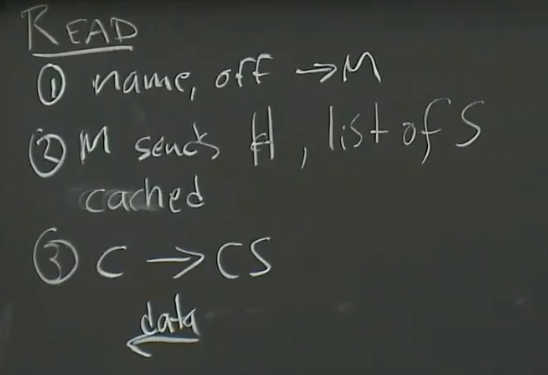 READ
① name, off → M
② M sends H, list of S
cached
③ C → CS
data